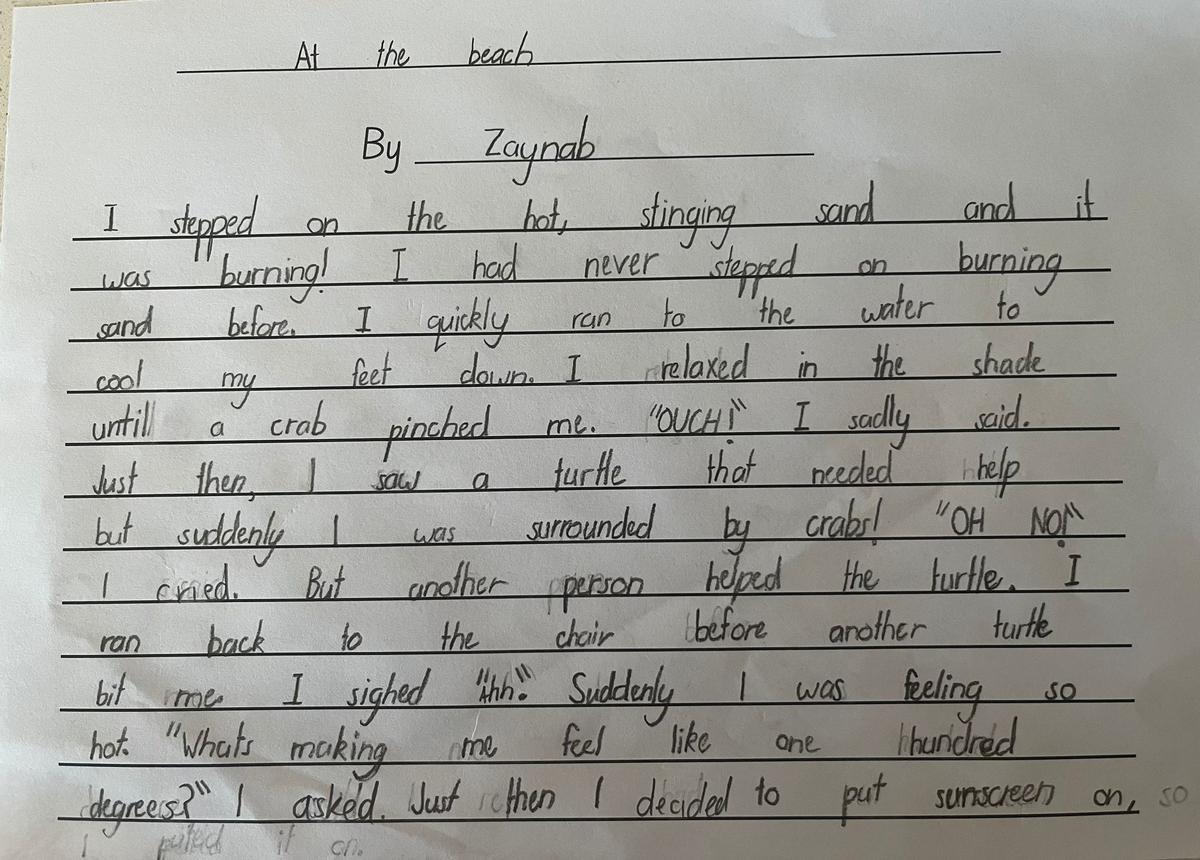 At the beach
By Zaynab
I stepped on the hot, stinging sand and it
was burning! I had never stepped on burning
sand before. I quickly ran to the water to
cool my feet down. I relaxed in the shade
untill a crab pinched me. "OUCH!" I sadly said.
Just then, I saw a turtle that needed help
but suddenly I was surrounded by crabs! "OH NO!"
I cried. But another person helped the turtle. I
ran back to the chair before another turtle
bit me. I sighed "Ahh." Suddenly I was feeling so
hot. "Whats making me feel like one hundred
degrees?" I asked. Just then I decided to put sunscreen on, so
I puted it on.